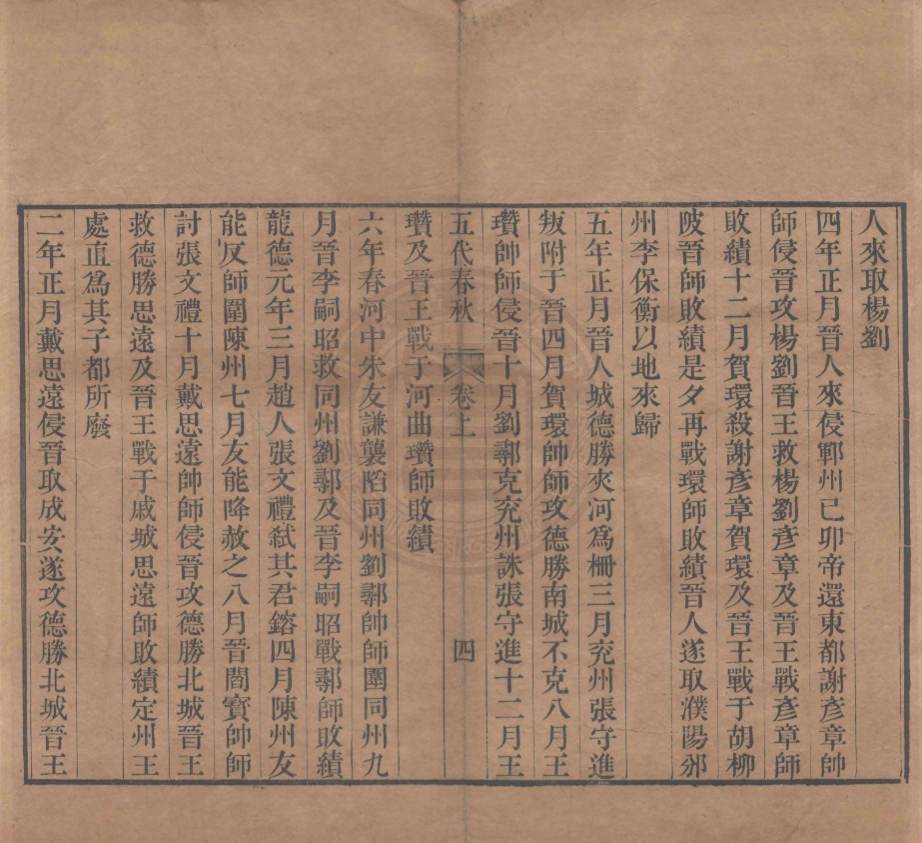 人來取楊劉
四年正月晉人來侵鄆州己卯帝還東都謝彥章帥
師侵晉攻楊劉晉王救楊劉彥章及晉王戰彥章師
敗績十二月賀環殺謝彥章賀環及晉王戰于胡柳
陂晉師敗績是夕再戰環師敗績晉人遂取濮陽邠
州李保衡以地來歸
五年正月晉人城德勝夾河爲柵三月兖州張守進
叛附于晉四月賀環帥師攻德勝南城不克八月王
瓚帥師侵晉十月劉鄩克兖州誅張守進十二月王
五代春秋 卷上 四
瓚及晉王戰于河曲瓚師敗績
六年春河中朱友謙襲䧟同州劉鄩帥師圍同州九
月晉李嗣昭救同州劉鄩及晉李嗣昭戰鄩師敗績
龍德元年三月趙人張文禮弒其君鎔四月陳州友
能反師圍陳州七月友能降赦之八月晉閻寶帥師
討張文禮十月戴思遠帥師侵晉攻德勝北城晉王
救德勝思遠及晉王戰于戚城思遠師敗績定州王
處直爲其子都所廢
二年正月戴思遠侵晉取成安遂攻德勝北城晉王